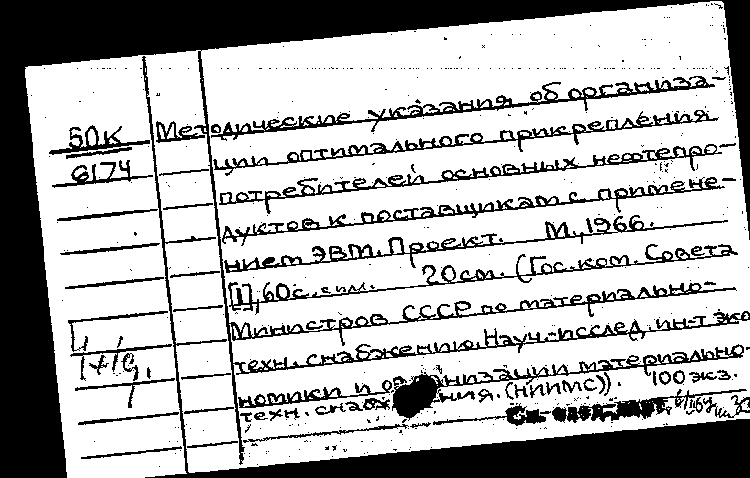 50К
6174
Методические указания об организа-
ции оптимального прикрепления
потребителей основных нефтепро-
дуктов к поставщикам с примене-
нием ЭВМ. Проект. М., 1966.
[1], 60 с. с илл. 20 см. (Гос. ком. Совета
Министров СССР по материально-
техн. снабжению. Науч.-исслед. ин-т эко
номики и организации материально-
техн. снабжения. (НИИМС)). 100 экз.
См. след.